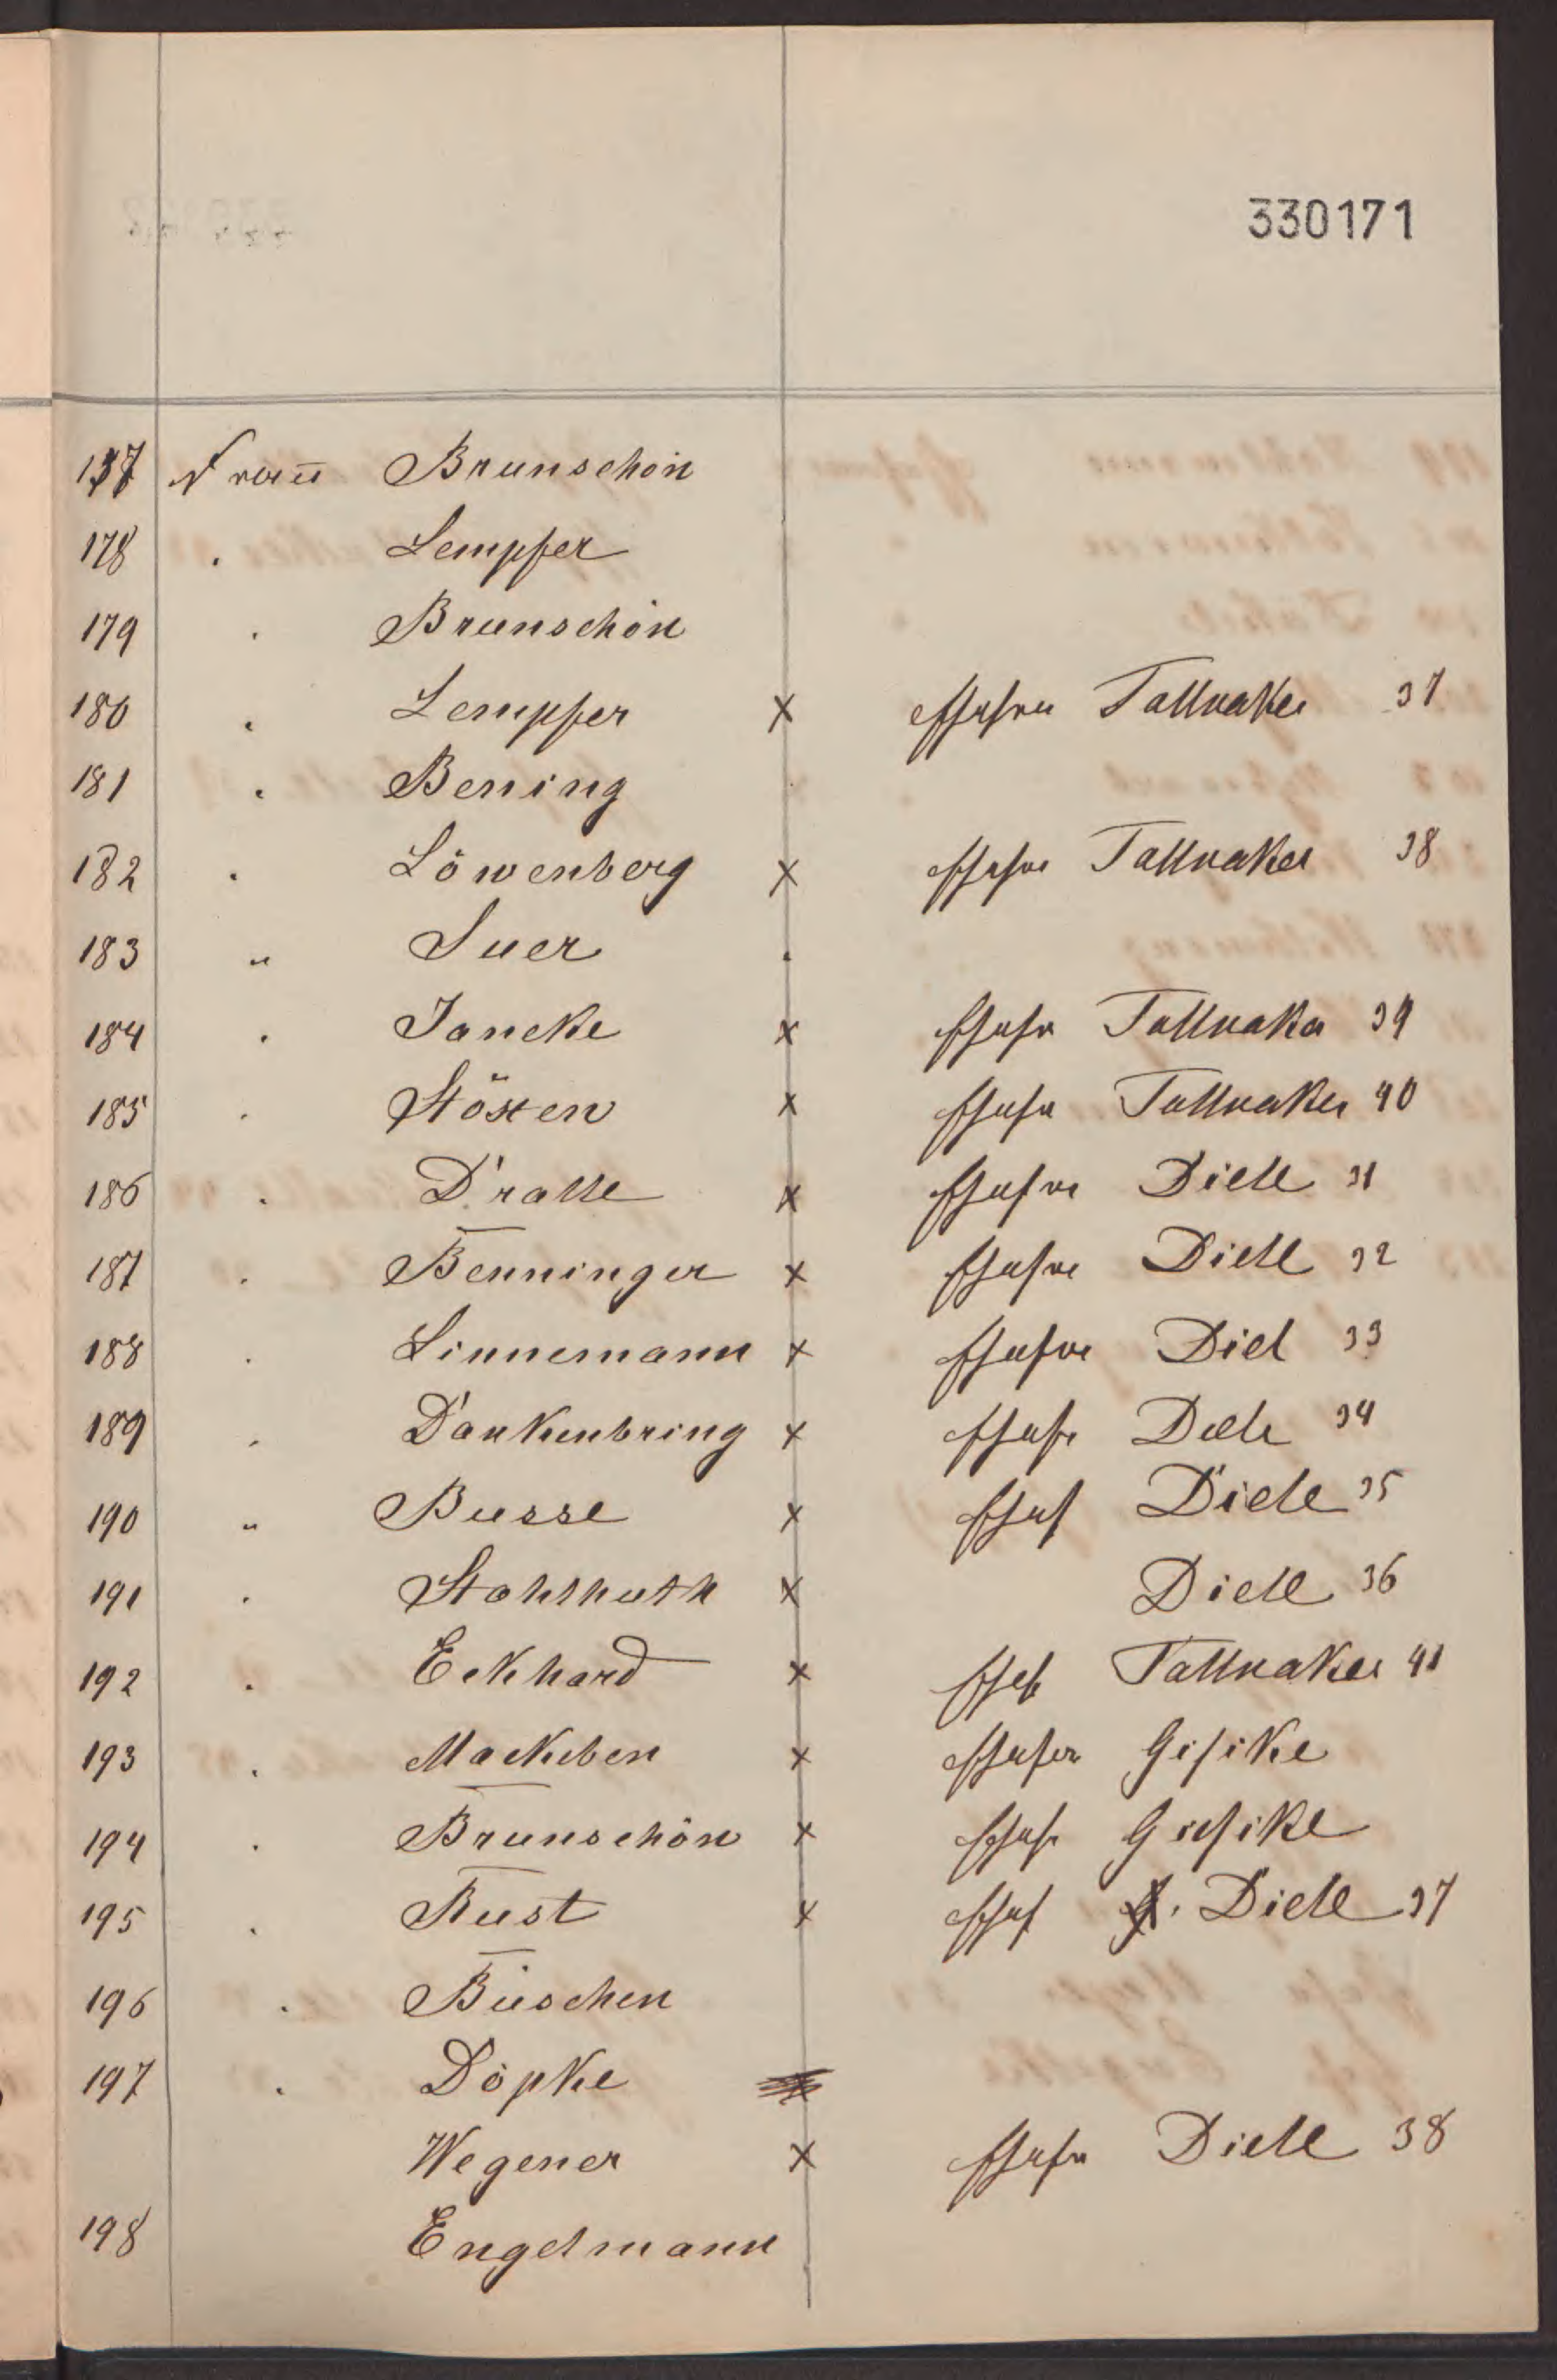 330171
177 Frau Brunschön
178 . Lempfer
179 . Brunschön
180 . Lempfer x Tallnaker 37
181 . Bening
182 . Löwenberg x Tallnaker 38
183 " Suer .
184 . Jancke x Tallnaker 39
185 . Stösten x Tallnaker 40
186 . Dralle x Diele 31
187 . Benninger x Diele 32
188 . Linnemann x Diel 33
189 . Dankenbring x Diele 34
190 " Busse x Diele 35
191 . Stahlhuth x Diele 36
192 . Eckhard x Tallnaker 41
193 . Mackeben x Gisike
194 . Brunschön x Giesike
195 . Rust x Diele 37
196 . Büschen
197 . Döpke
Wegener x Diele 38
198 Engelmann